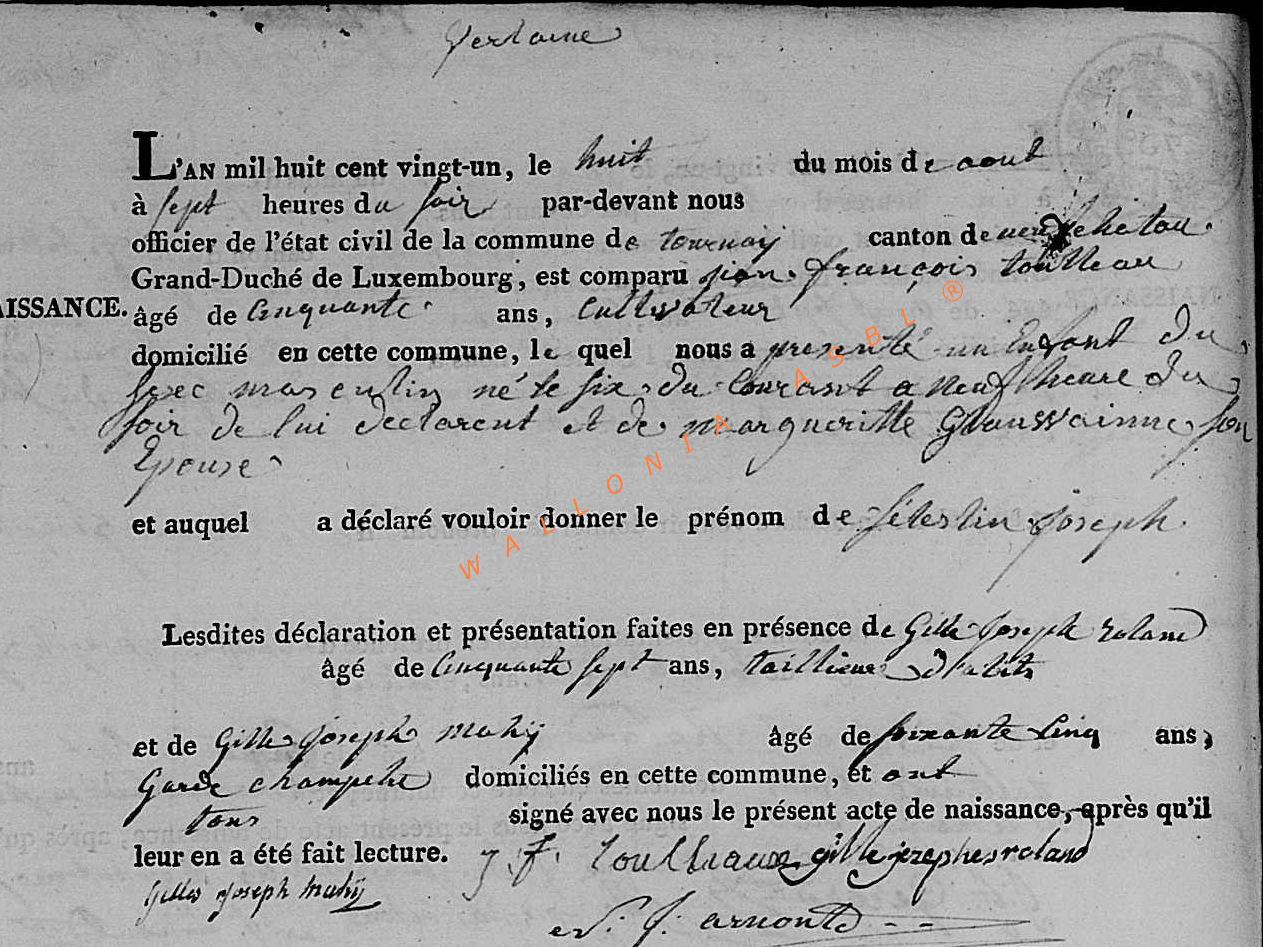 Verlaine
L'AN mil huit cent vingt-un, le huit du mois de aout
à sept heures du soir par-devant nous
officier de l'état civil de la commune de tournay canton de
Grand-Duché de Luxembourg, est comparu jean françois toulleau
AISSANCE. âgé de Cinquante ans, Cultivateur
domicilié en cette commune, le quel nous a presenté un Enfant du
sexec masculin né le six du Courant a neuf heure du
soir de lui declarent et de margueritte son
Epouse
et auquel a déclaré vouloir donner le prénom de Sélestin joseph
Lesdites déclaration et présentation faites en présence de Gille joseph roland
âgé de Cinquante sept ans, taillieur D'abits
et de Gille joseph mahij âgé de soixante Cinq ans,
Garde champetre domiciliés en cette commune, et ont
tous signé avec nous le présent acte de naissance, après qu'il
leur en a été fait lecture. j. f. toulleaux gille jozephes roland
Gilles joseph mahij
arnould
WALLONIA ASBL ®